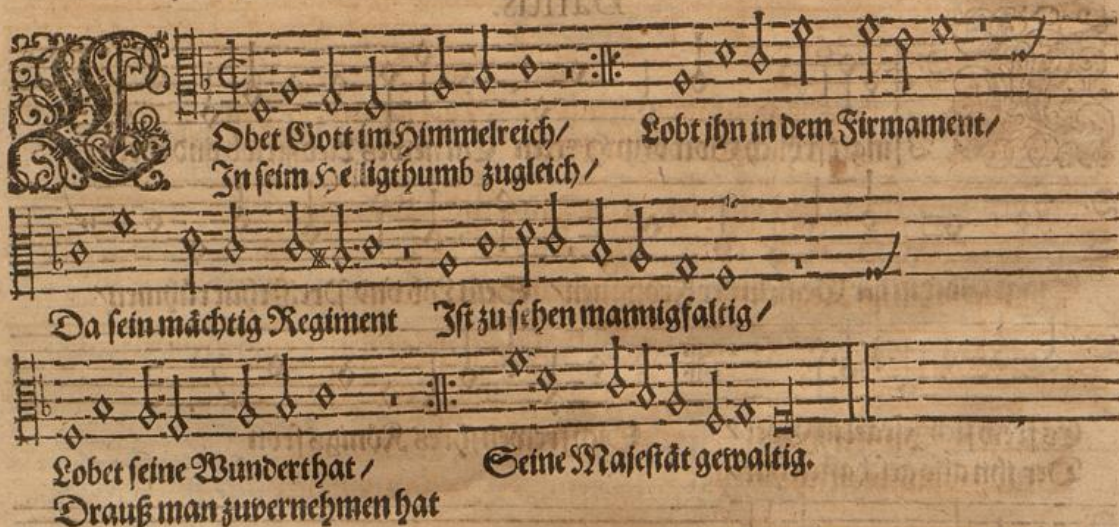 LObet Gott im Himmelreich/ Lobt jhn in dem Firmament/
In seim Heiligthumb zugleich/
Da sein mächtig Regiment Ist zu sehen mannigfaltig/
Lobet seine Wunderthat/ Seine Majestät gewaltig.
Drauß man zuvernehmen hat